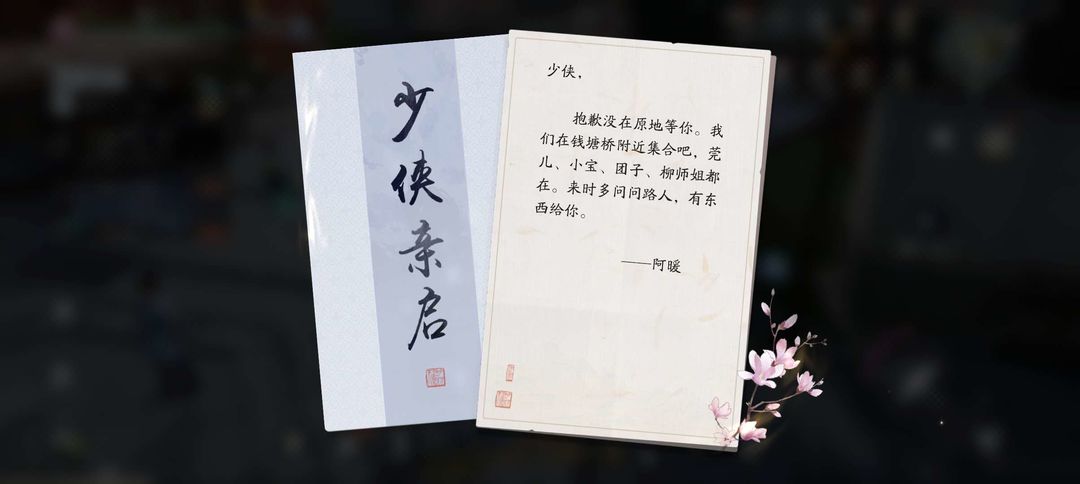 少侠亲启
少侠，
抱歉没在原地等你。我
们在钱塘桥附近集合吧，莞
儿、小宝、团子、柳师姐都
在。来时多问问路人，有东
西给你。
——阿暖